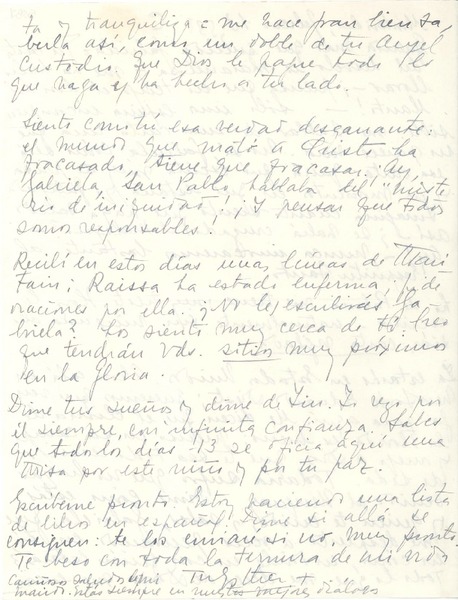 ta y tranquiliza: me hace gran bien sa-
berla así, como un doble de tu Angel
Custodio. Que Dios le pague todo lo
que haga y ha hecho a tu lado.
Siento contigo esa verdad desganante:
el mundo que mató a Cristo ha
fracasado, tiene que fracasar. ¡Ay
Gabriela, San Pablo hablaba del "miste-
rio de iniquidad"! ¡Y pensar que todos
somos responsables!
Recibí en estos días unas líneas de Mari-
tain: Raissa ha estado enferma, pide
oraciones por ella. ¿No les escribirás Ga-
briela? Los siento muy cerca de ti. Creo
que tendrán Vds. sitios muy próximos
en la Gloria.
Dime tus sueños y dime de Yin. Yo rezo por
él siempre, con infinita confianza. Sabes
que todos los días 13 se oficia aquí una
misa por este niño y por tu paz.
Escríbeme pronto. Estoy haciendo una lista
de libros en español. Dime si allá se
consiguen: te los enviaré si no, muy pronto.
Te beso con toda la ternura de mi vida
Cariñosos saludos de mi Tu Esther +
marido. Estás siempre en nuestros mejores diálogos